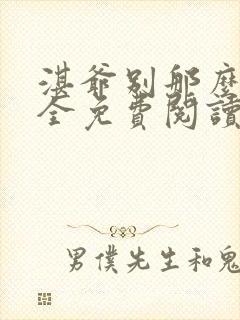 湛爺別那麼
全免費閱讀
男僕先生和鬼